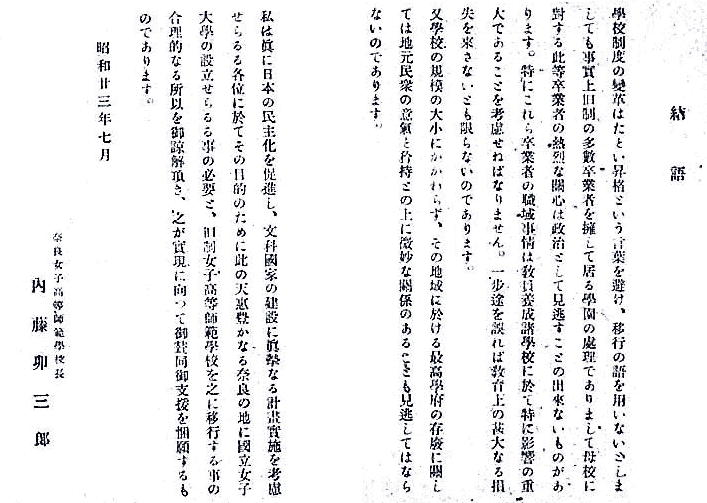 結語
學校制度の變革はたとい昇格という言葉を避け、移行の語を用いないとしま
しても事實上旧制の多數卒業者を擁して居る學園の處理でありまして母校に
對する此等卒業者の熱烈な關心は政治として見逃すことの出來ないものがあ
ります。特にこれら卒業者の職域事情は敎員養成諸學校に於て特に影響の重
大であることを考慮せねばなりません。一歩途を誤れば敎育上の甚大なる損
失を來さないとも限らないのであります。
又學校の規模の大小にかかわらず、その地域に於ける最高學府の存廢に關し
ては地元民衆の意氣と矜持との上に微妙な關係のあることも見逃してはなら
ないのであります。
私は眞に日本の民主化を促進し、文科國家の建設に眞摯なる計畫實施を考慮
せらるる各位に於てその目的のために此の天惠豊かなる奈良の地に國立女子
大學の設立せらるる事の必要と、旧制女子高等師範學校を之に移行する事の
合理的なる所以を御諒解頂き、之が實現に向つて御賛同御支援を懇願するも
のであります。
昭和廿三年七月
奈良女子高等師範學校長
內藤卯三郎